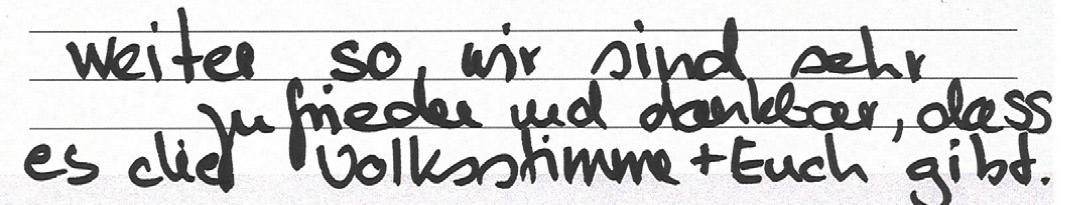 weiter so, wir sind sehr
zufrieden und dankbar, dass
es die Volksstimme + Euch gibt.